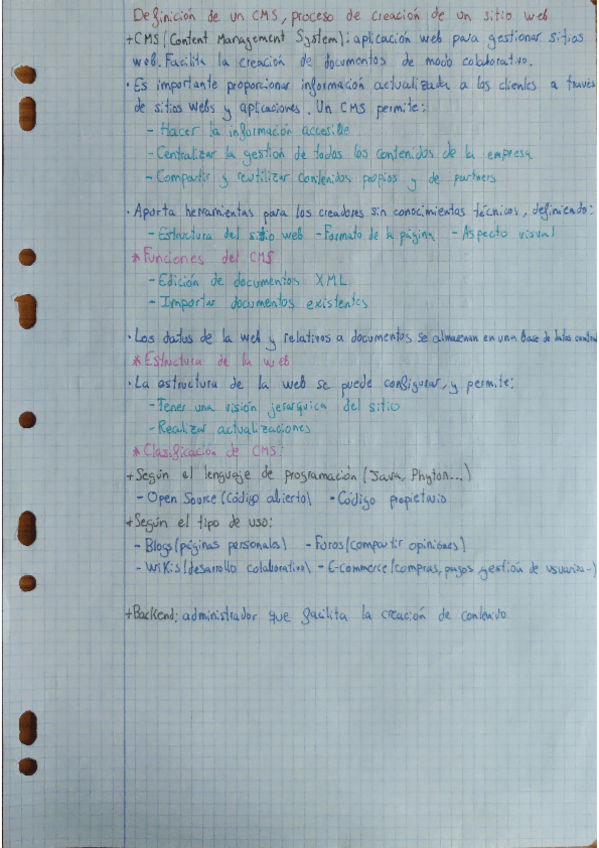 Definición de un CMS, proceso de creación de un sitio web
+CMS (Content Management System): aplicación web para gestionar sitios
web. Facilita la creación de documentos de modo colaborativo.
· Es importante proporcionar información actualizada a los clientes a través
de sitios webs y aplicaciones. Un CMS permite:
- Hacer la información accesible
- Centralizar la gestión de todos los contenidos de la empresa
- Compartir y reutilizar contenidos propios y de partners
· Aporta herramientas para los creadores sin conocimientos técnicos, definiendo:
- Estructura del sitio web - Formato de la página - Aspecto visual
* Funciones del CMS
- Edición de documentos XML
- Importar documentos existentes
· Los datos de la web y relativos a documentos se almacenan en una base de datos central
* Estructura de la web
· La estructura de la web se puede configurar, y permite:
- Tener una visión jerárquica del sitio
- Realizar actualizaciones
* Clasificación de CMS:
+ Según el lenguaje de programación (Java, Phyton...)
- Open Source (Código abierto) - Código propietario
+ Según el tipo de uso:
- Blogs (páginas personales) - Foros (compartir opiniones)
- Wikis (desarollo colaborativo) - E-commerce (compras, pagos gestión de usuarios-)
+Backend: administrador que facilita la creación de contenido